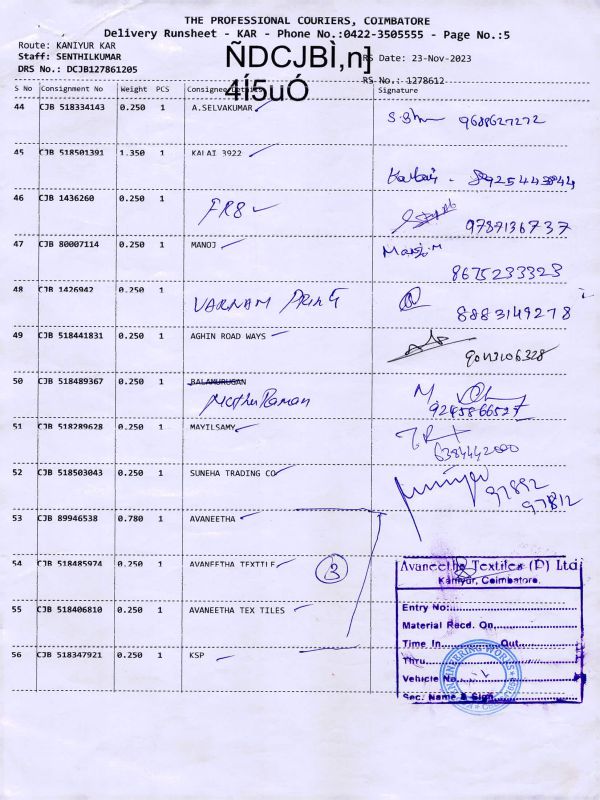 THE PROFESSIONAL COURIERS, COIMBATORE
Delivery Runsheet - KAR - Phone No.:0422-3505555 - Page No.:5
Route: KANIYUR KAR
Staff: SENTHILKUMAR
RS Date: 23-Nov-2023
DRS No.: DCJB127861205
RS No.: 1278612
ÑDCJBÌ,n]
4Í5uÓ
S No Consignment No Weight PCS Consignee Details Signature
44 CJB 518334143 0.250 1 A.SELVAKUMAR 9688627272
45 CJB 518501391 1.350 1 KALAI 3922
Kalai - 8925443844
46 CJB 1436260 0.250 1 FR8
9787136737
47 CJB 80007114 0.250 1 MANOJ Manoj
8675233323
48 CJB 1426942 0.250 1 VARNAM PRINT
8883149278
49 CJB 518441831 0.250 1 AGHIN ROAD WAYS
50 CJB 518489367 0.250 1 BALAMURUGAN
MuthuRaman
9245866527
51 CJB 518289628 0.250 1 MAYILSAMY
6384442000
52 CJB 518503043 0.250 1 SUNEHA TRADING CO
97892
97812
53 CJB 89946538 0.780 1 AVANEETHA
54 CJB 518485974 0.250 1 AVANEETHA TEXTILE
3
55 CJB 518406810 0.250 1 AVANEETHA TEX TILES
56 CJB 518347921 0.250 1 KSP
Avaneetha Textiles (P) Ltd
Kaniyur, Coimbatore.
Entry No:
Material Recd. On
Time In Out
Thru
Vehicle No
Sec. Name & Sign